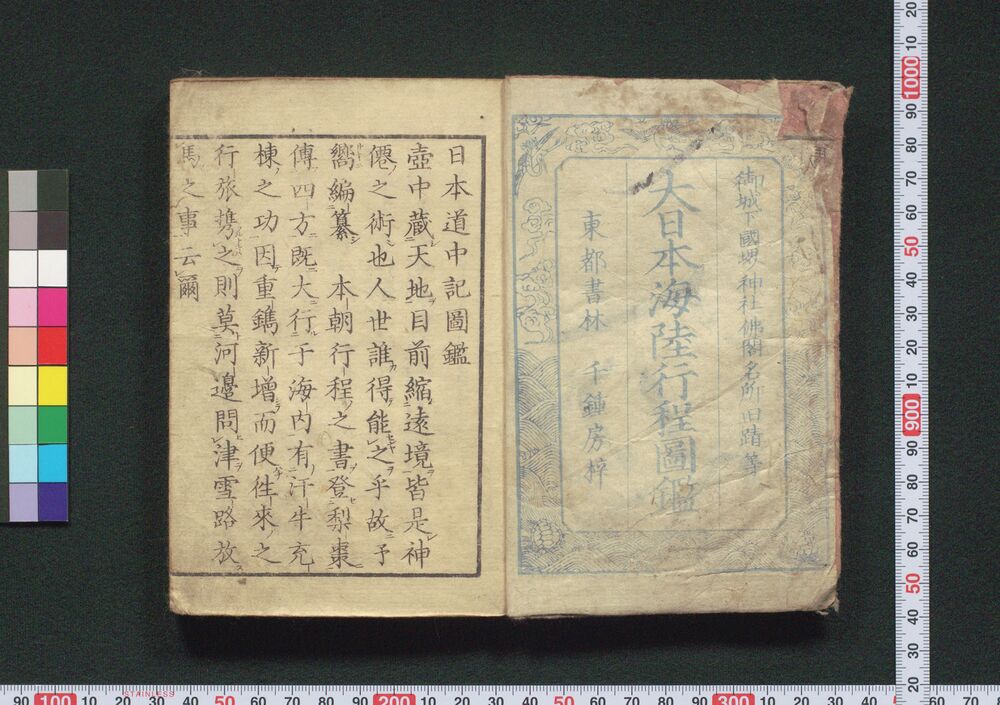 御城下國堺神社佛閣名所旧蹟等
大日本海陸行程圖鑑
東都書林 千鍾房梓
日本道中記圖鑑
壺中蔵天地目前縮遠境皆是神
僊之術也人世誰得能之乎故予
嚮編纂 本朝行程之書登梨棗
傳四方既大行于海内有汗牛充
棟之功因重鐫新増而便徃來之
行旅擕之則莫河邉問津雪路放
馬之事云爾
STAINLESS
20
10
1000
90
80
70
60
50
40
30
20
10
900
90
80
70
60
50
40
30
20
90
100
10
20
30
40
50
60
70
80
90
200
10
20
30
40
50
60
70
80
90
300
10
20
30
40
60
70